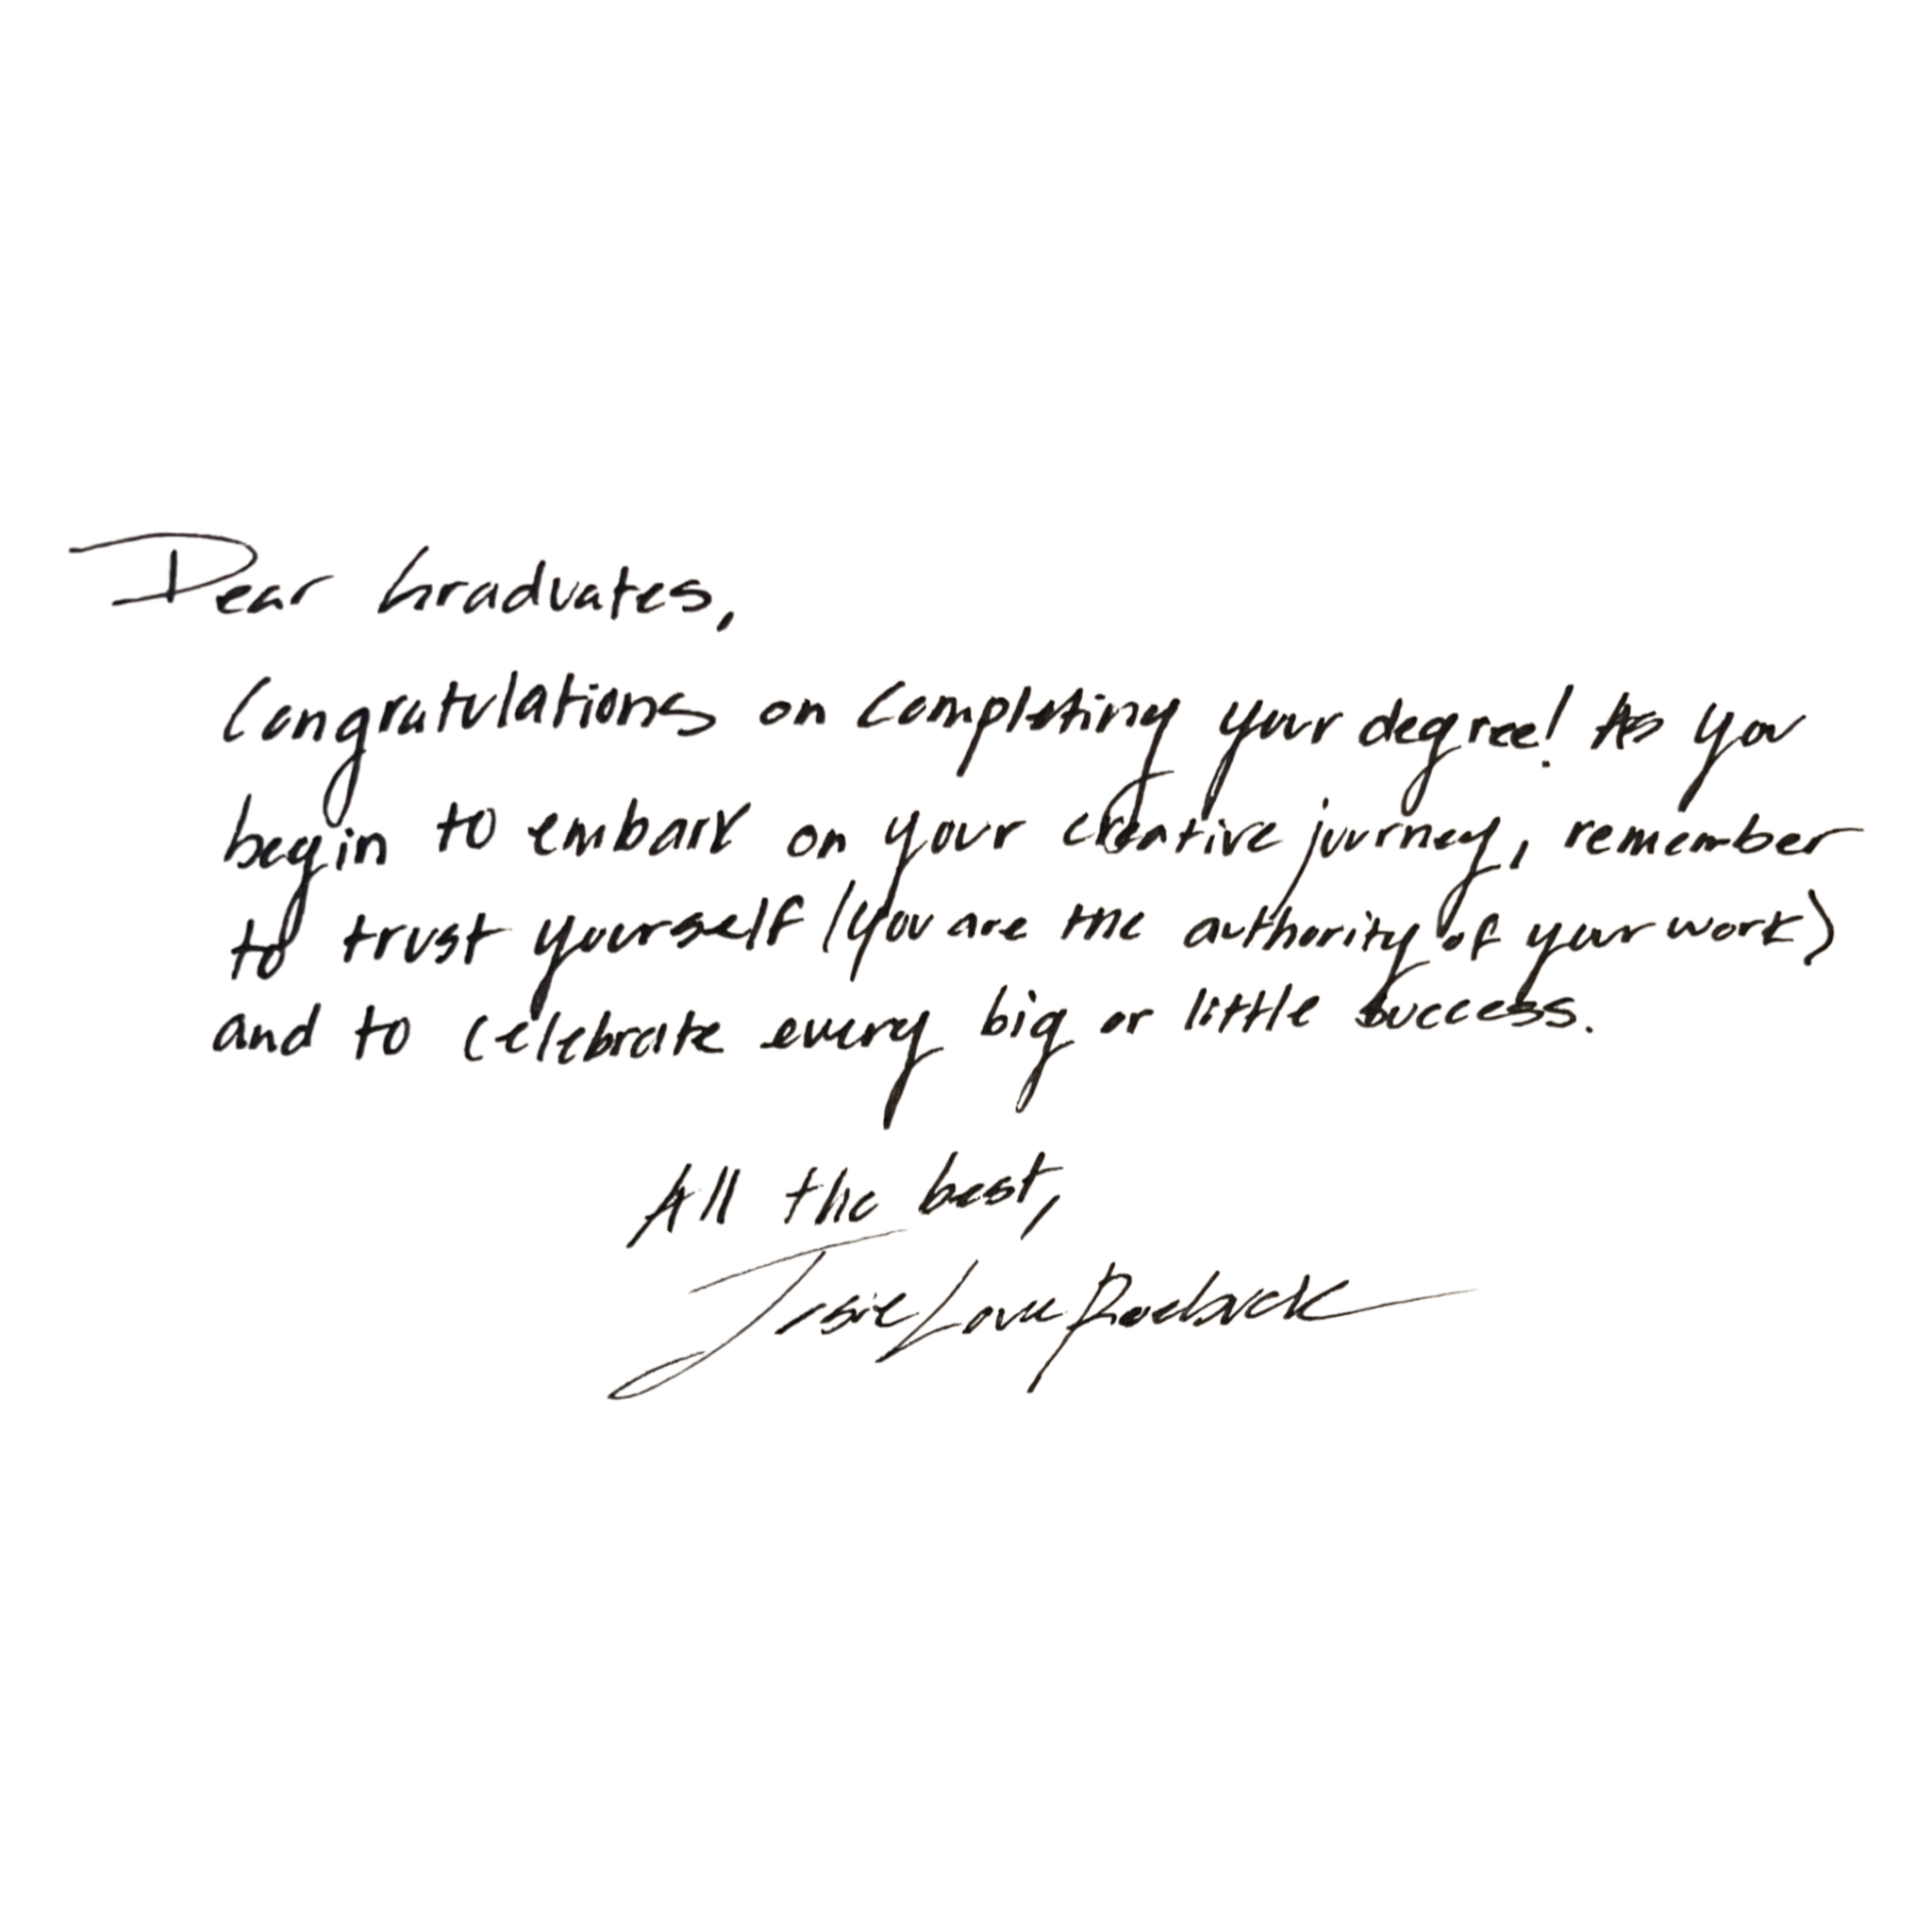 Dear Graduates,
Congratulations on completing your degree! As you
begin to embark on your creative journey, remember
to trust yourself (you are the authority of your work)
and to celebrate every big or little success.
All the best,
Josie Love Roebuck